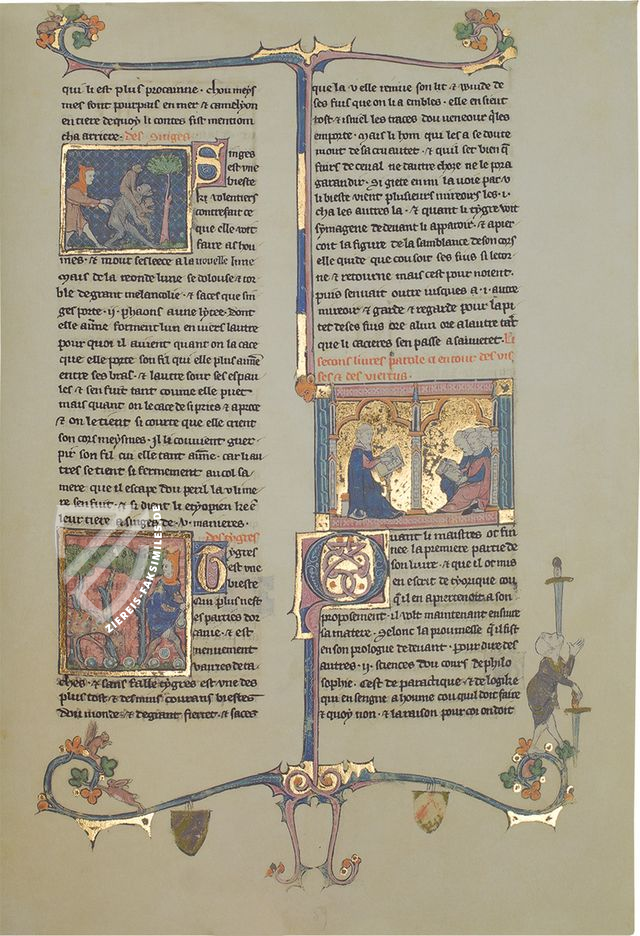 qui li est plus procainne · chou meys
mes sont pourpais en mer & camelyon
en tiere de quoy li contes fist mention
cha arriere · des singes
Singes
est vne
bieste
ki volentiers
contrefait ce
que elle voit
faire as hou
mes · & mout sesleece a la nouvelle lune
mais de la reonde lune se dolouse & tor
ble de grant melancolie · & saces que sin
ges porte · ij · phaons a une lycee · dont
elle aime forment lun en viers lautre
pour quoi il avient quant on la cace
que elle porte son fil qui elle plus aime
entre ses bras · & lautre sour ses espau
les & sen fuit tant coume elle puet
mais quant on le cace de si pries & aproce
& on le tient si courte que elle crient
son cors meysmes · Il le couvient guer
pir son fil cui elle tant aime · car li au
tres se tient si fermement au col sa
mere que il escape dou peril la v li me
re sen fuit · & si dient li etyopien ke en
leur tiere a singes de · v · manieres ·
des tygres
Tygres
est vne
bieste
qui plus nest
es parties dor
canie · & est
menuement
vairee de ta
ches · & sans faille tygres est vne des
plus tost & des mius courans biestes
dou monde · & de grant fierret · & saces
que la v elle remue son lit & wuide de
ses fius que on li a embles · elle ensieut
tost & isniel les traces dou veneour qi les
enporte · mais li hom qui les a se doute
mout de sa cruautet · & qui set bien que
fuirs de ceval ne dautre choze ne le pora
garandir · Si giete en mi la voie par v
li bieste vient plusieurs mireours les · i ·
cha les autres la · & quant li tygre voit
symagene dedevant li apparoir · & apier
coit la figure de la samblance de son cors
elle quide que cou soit ses fius si letor
ne & retorne mais cest pour noient ·
puis sen vait outre iusques a · i · autre
mireour & garde & regarde pour la pi
tet de ses fius ore a lun ore a lautre tant
que li cacieres sen passe a sauvetet · Li
secons livres parole ci en tout des vis
ses & des viertus ·
Quant li maistres ot fin
nee la premiere partie de
son livre · & que il ot mis
en escrit de tyorique cou
qu'il en apiertenoit a son
proposement · il volt maintenant ensiure
sa matere · selonc la proumesse q'il fist
en son prologue de devant · pour dire des
autres · ij · sciences dou cours de philo
sophie · cest de paractique & de logike
qui ensengne a houme cou quil doit faire
& quoy non · & la raison pour coi on doit
ZIEREIS-FAKSIMILES.DE